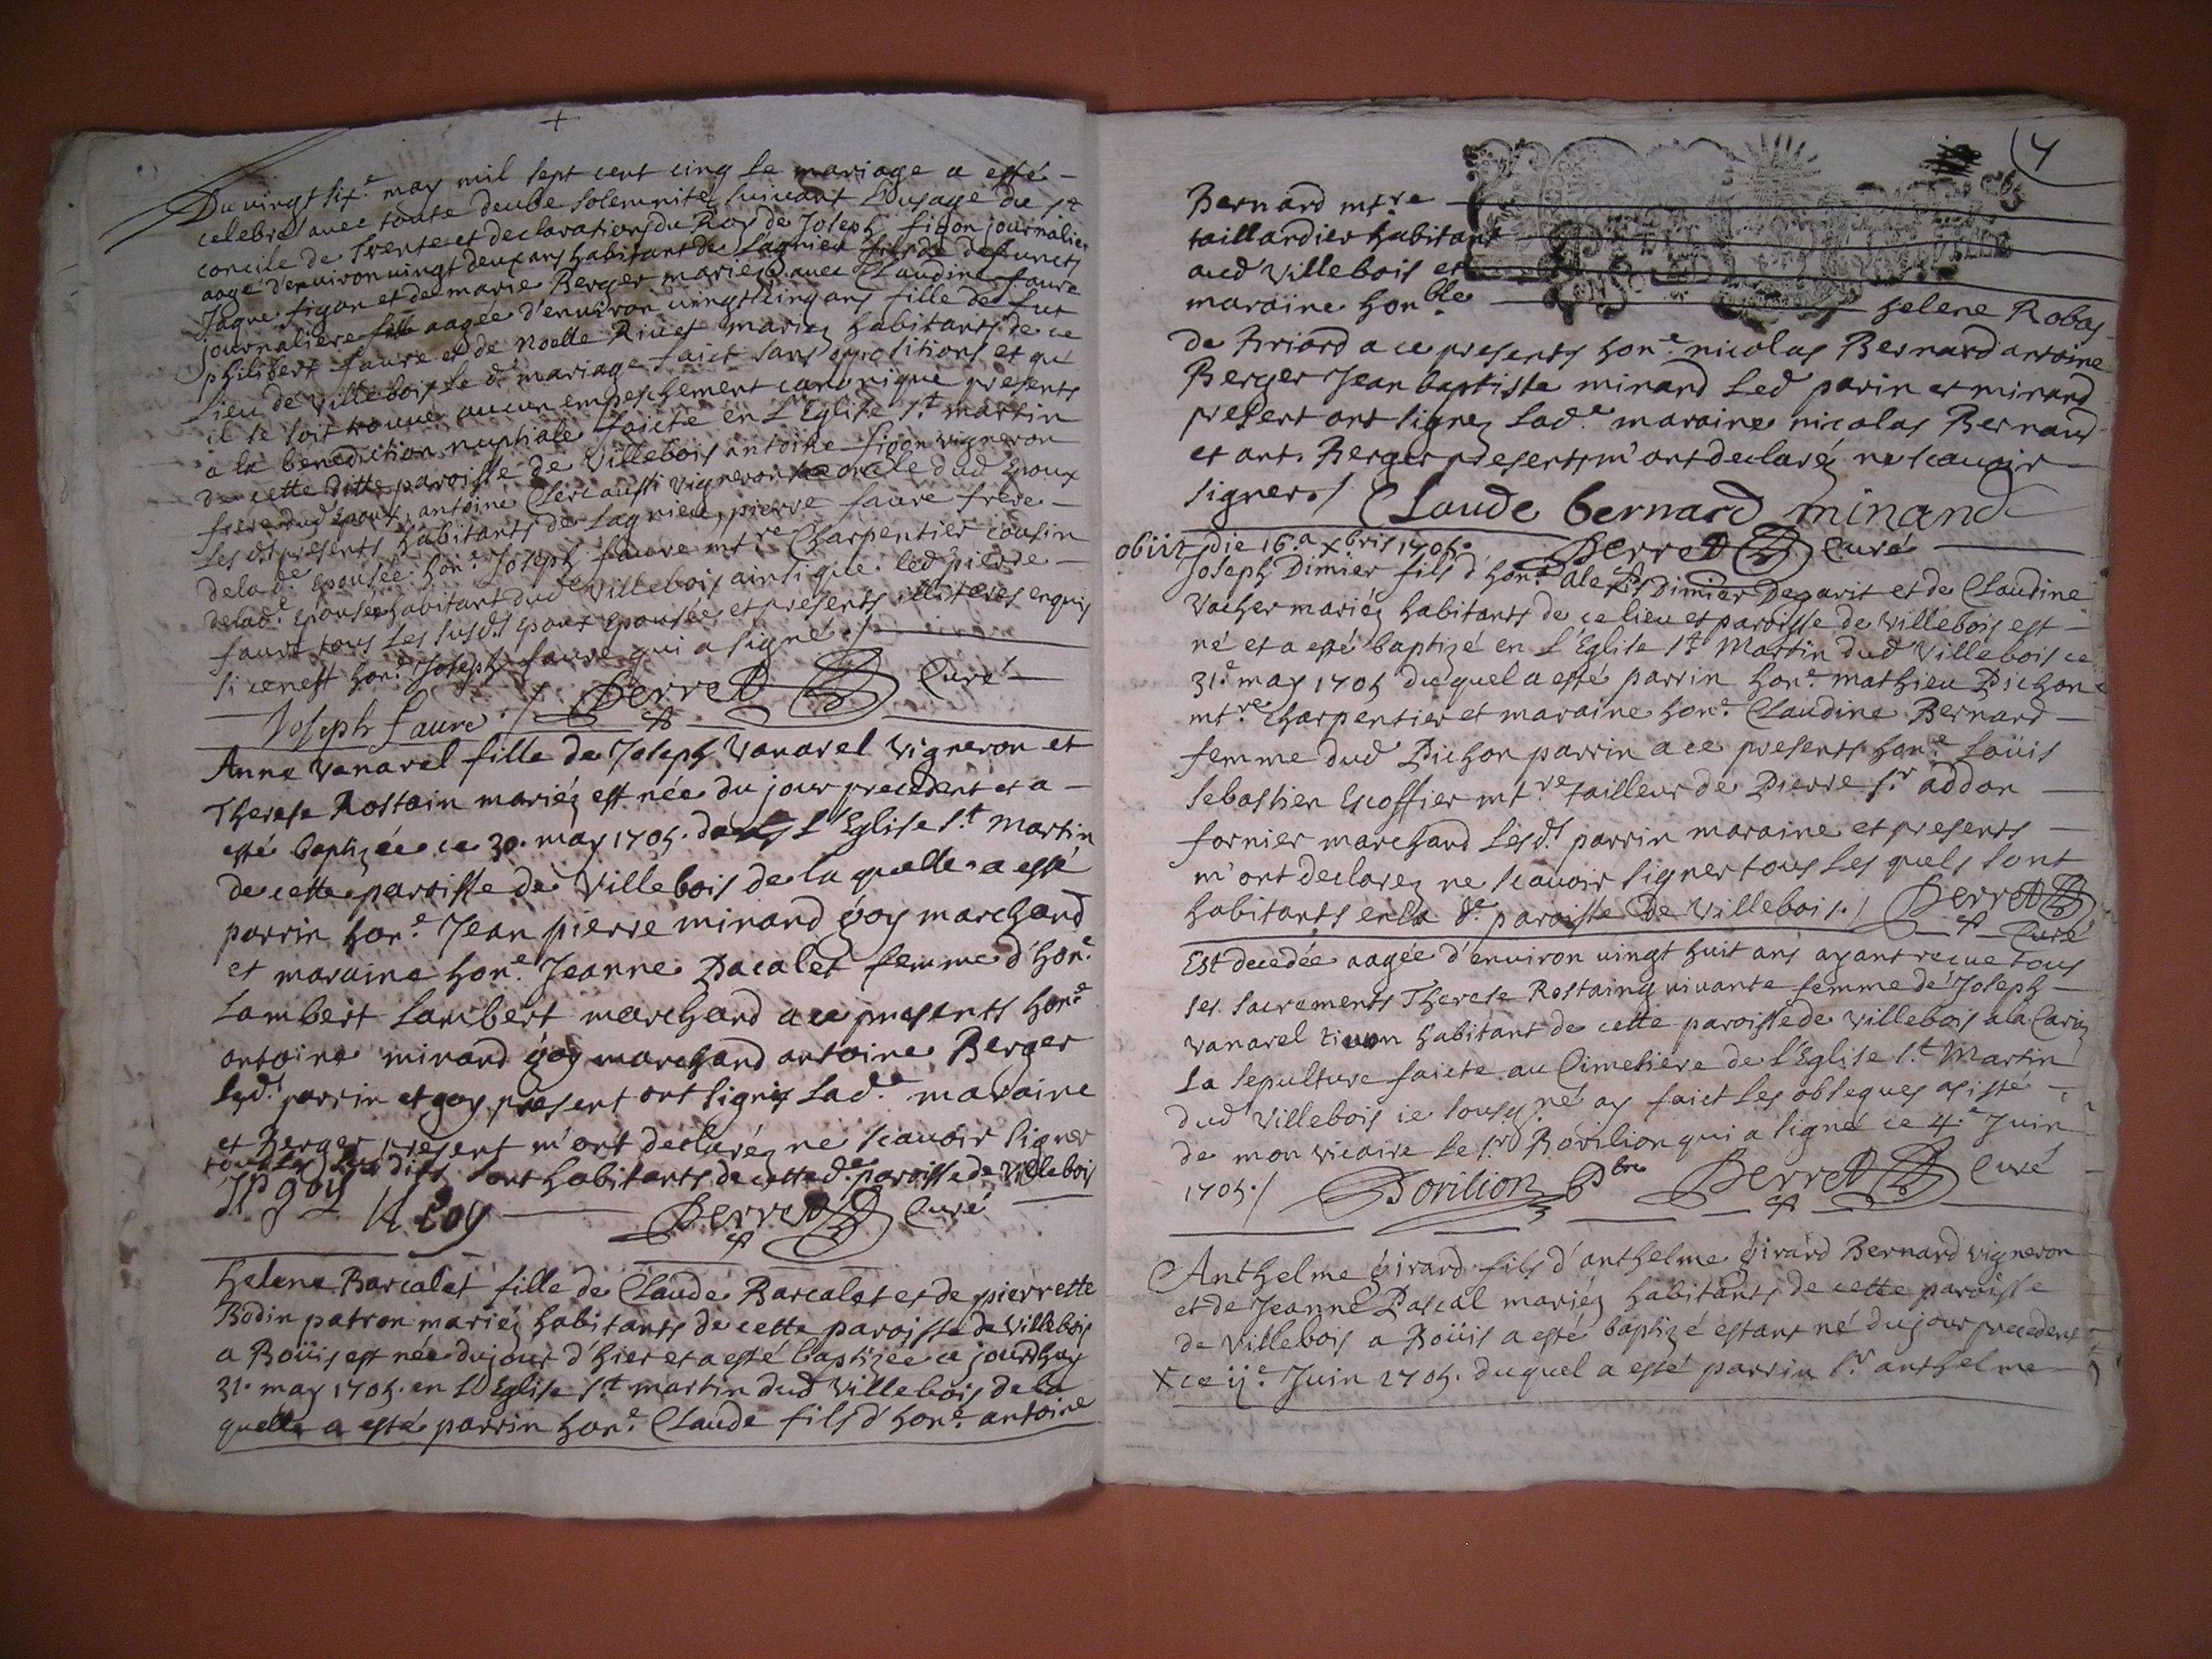 Du vingt six.e may mil sept cent cinq le mariage a esté
celebré avec toute deube solemnité suivant l'usage du st
concile de Trente et declarations du Roy de Joseph figon journalier
aagé d'environ vingt deux ans habitant de Lagnieu fils de defuncts
Jaque figon et de marie Berger mariez avec Claudine faure
journaliere aagée d'environ vingt cinq ans fille de fut
philibert faure et de Noelle Rivet mariez habitants de ce
lieu de villebois le d.t mariage faict sans oppositions et qu'
il se soit trouvé aucun empeschement canonique presents
a la benediction nuptiale faicte en L'Eglise s.t martin
de cette ditte paroisse de villebois antoine figon vigneron
frere dud epoux, antoine Clerc aussi vigneron oncle dud epoux
les ds presents habitants de Lagnieu, pierre faure frere
de la d.e epousée hon.e Joseph faure mt.re Charpentier cousin
de lad.e epousée habitant dud villebois ainsi que led pierre
faure tous les susd.s epoux epousée et presents illiteres enquis
si ce nest hon.e Joseph faure qui a signé ./
Joseph faure ./ Perret Curé
Anne Vanarel fille de Joseph Vanarel vigneron et
Therese Rostain mariéz est née du jour precedent et a
esté baptizée ce 30. may 1705. dans L'Eglise s.t Martin
de cette paroisse de Villebois de la quelle a esté
parrin hon.e Jean pierre minand goy marchand
et maraine hon.e Jeanne Pacalet femme d'hon.e
Lambert Lambert marchand a ce presents hon.e
antoine minand goy marchand antoine Berger
lesd.s parrin et goy present ont signéz lad.e maraine
et Berger present m'ont declaréz ne scavoir signer
tous les susdits sont habitants de cette d.e paroisse de villebois
JP goy M goy Perret Curé
helene Barcalet fille de Claude Barcalet et de pierrette
Bodin patron mariéz habitants de cette paroisse de villebois
a Boüis est née du jour d'hier et a esté baptizée ce jourdhuy
31. may 1705. en L'Eglise s.t martin dud villebois de la
quelle a esté parrin hon.e Claude fils d'hon.e antoine
4
Bernard mt.re
taillardier habitant
aud villebois et
maraine hon.ble helene Robas
de Briord a ce presents hon.e nicolas Bernard antoine
Berger Jean baptiste minand led parin et minand
present ont signez lad.e maraine nicolas Bernard
et ant. Berger presents m'ont declaréz ne scavoir
signer ./ Claude bernard minand
obiit die 16.a xbris 1705. Perret Curé
Joseph Dimier fils d'hon.e Alexis Dimier Deparit et de Claudine
Vacher mariéz habitants de ce lieu et paroisse de villebois est
né et a esté baptizé en L'Eglise s.t Martin dud villebois ce
31.e may 1705 duquel a esté parrin hon.e mathieu Pichon
mt.re Charpentier et maraine hon.e Claudine Bernard
femme dud Pichon parrin a ce presents hon.e Loüis
Sebastien Escoffier mt.re tailleur de Pierre s.r addon
fornier marchand lesd.s parrin maraine et presents
m'ont declarez ne scavoir signer tous les quels sont
habitants en la d.e paroisse de villebois ./ Perret
Curé
Est decedée aagée d'environ vingt huit ans ayant recue tous
ses sacraments Therese Rostaing vivante femme de Joseph
vanarel habitant de cette paroisse de villebois a la
la sepulture faicte au Cimetiere de L'Eglise s.t Martin
dud villebois ie sousg.né ay faict les obseques asisté
de mon vicaire le s.r Borilion qui a signé ce 4.e Juin
1705 ./ Borilion pbre Perret Curé
Anthelme girard fils d'anthelme girard Bernard vigneron
et de Jeanne Pascal mariéz habitants de cette paroisse
de villebois a Boüis a esté baptizé estant né du jour precedent
x ce ij.e Juin 1705. duquel a esté parrin s.r anthelme